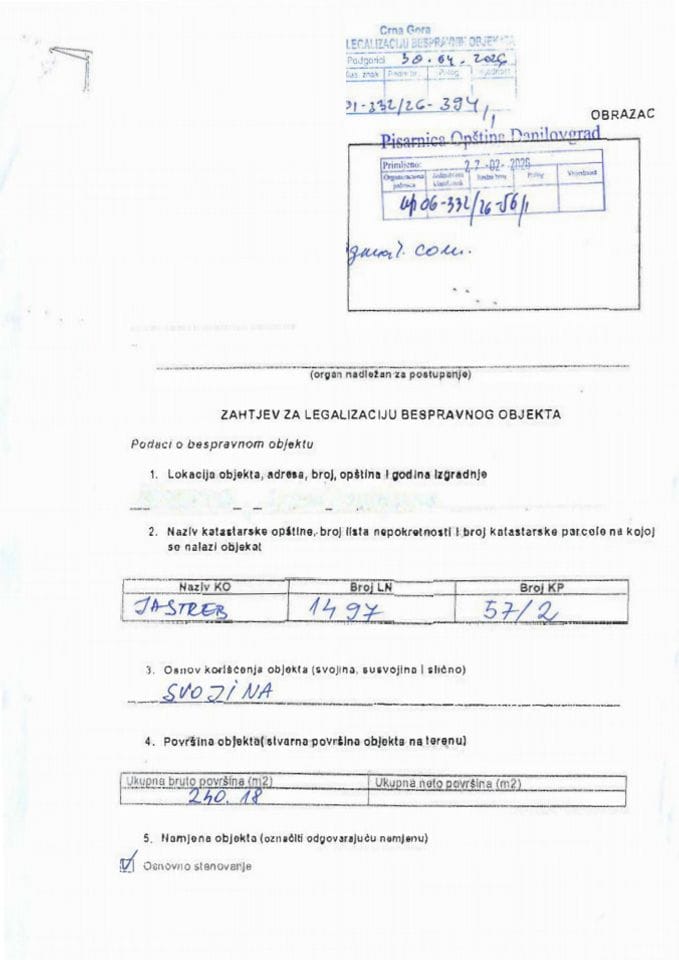 Crna Gora
LEGALIZACIJU BESPRAVNIH OBJEKATA
Podgorici 30.04.2026
Prilog
01-332/26-394/1
OBRAZAC
Pisarnica Opština Danilovgrad
Primljeno: 27-02-2026
Organizaciona jedinica Jedinstveni klasif. znak Redni broj Prilog Vrijednost
up 06-332/26-56/1
gmail.com.
(organ nadležan za postupanje)
ZAHTJEV ZA LEGALIZACIJU BESPRAVNOG OBJEKTA
Podaci o bespravnom objektu
1. Lokacija objekta, adresa, broj, opština i godina izgradnje
2. Naziv katastarske opštine, broj lista nepokretnosti i broj katastarske parcele na kojoj
se nalazi objekat
Naziv KO Broj LN Broj KP
JASTREB 1497 57/2
3. Osnov korišćenja objekta (svojina, susvojina i slično)
SVOJINA
4. Površina objekta(stvarna površina objekta na terenu)
Ukupna bruto površina (m2) Ukupna neto površina (m2)
240.18
5. Namjena objekta (označiti odgovarajuću namjenu)
Osnovno stanovanje